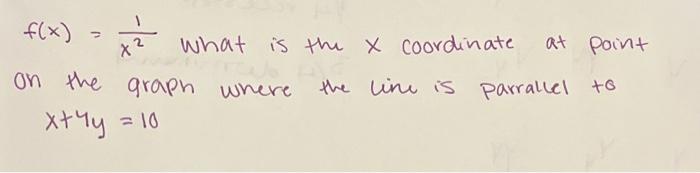 f(x) = 1/x² what is the x coordinate at point
on the graph where the line is parrallel to
x+4y = 10